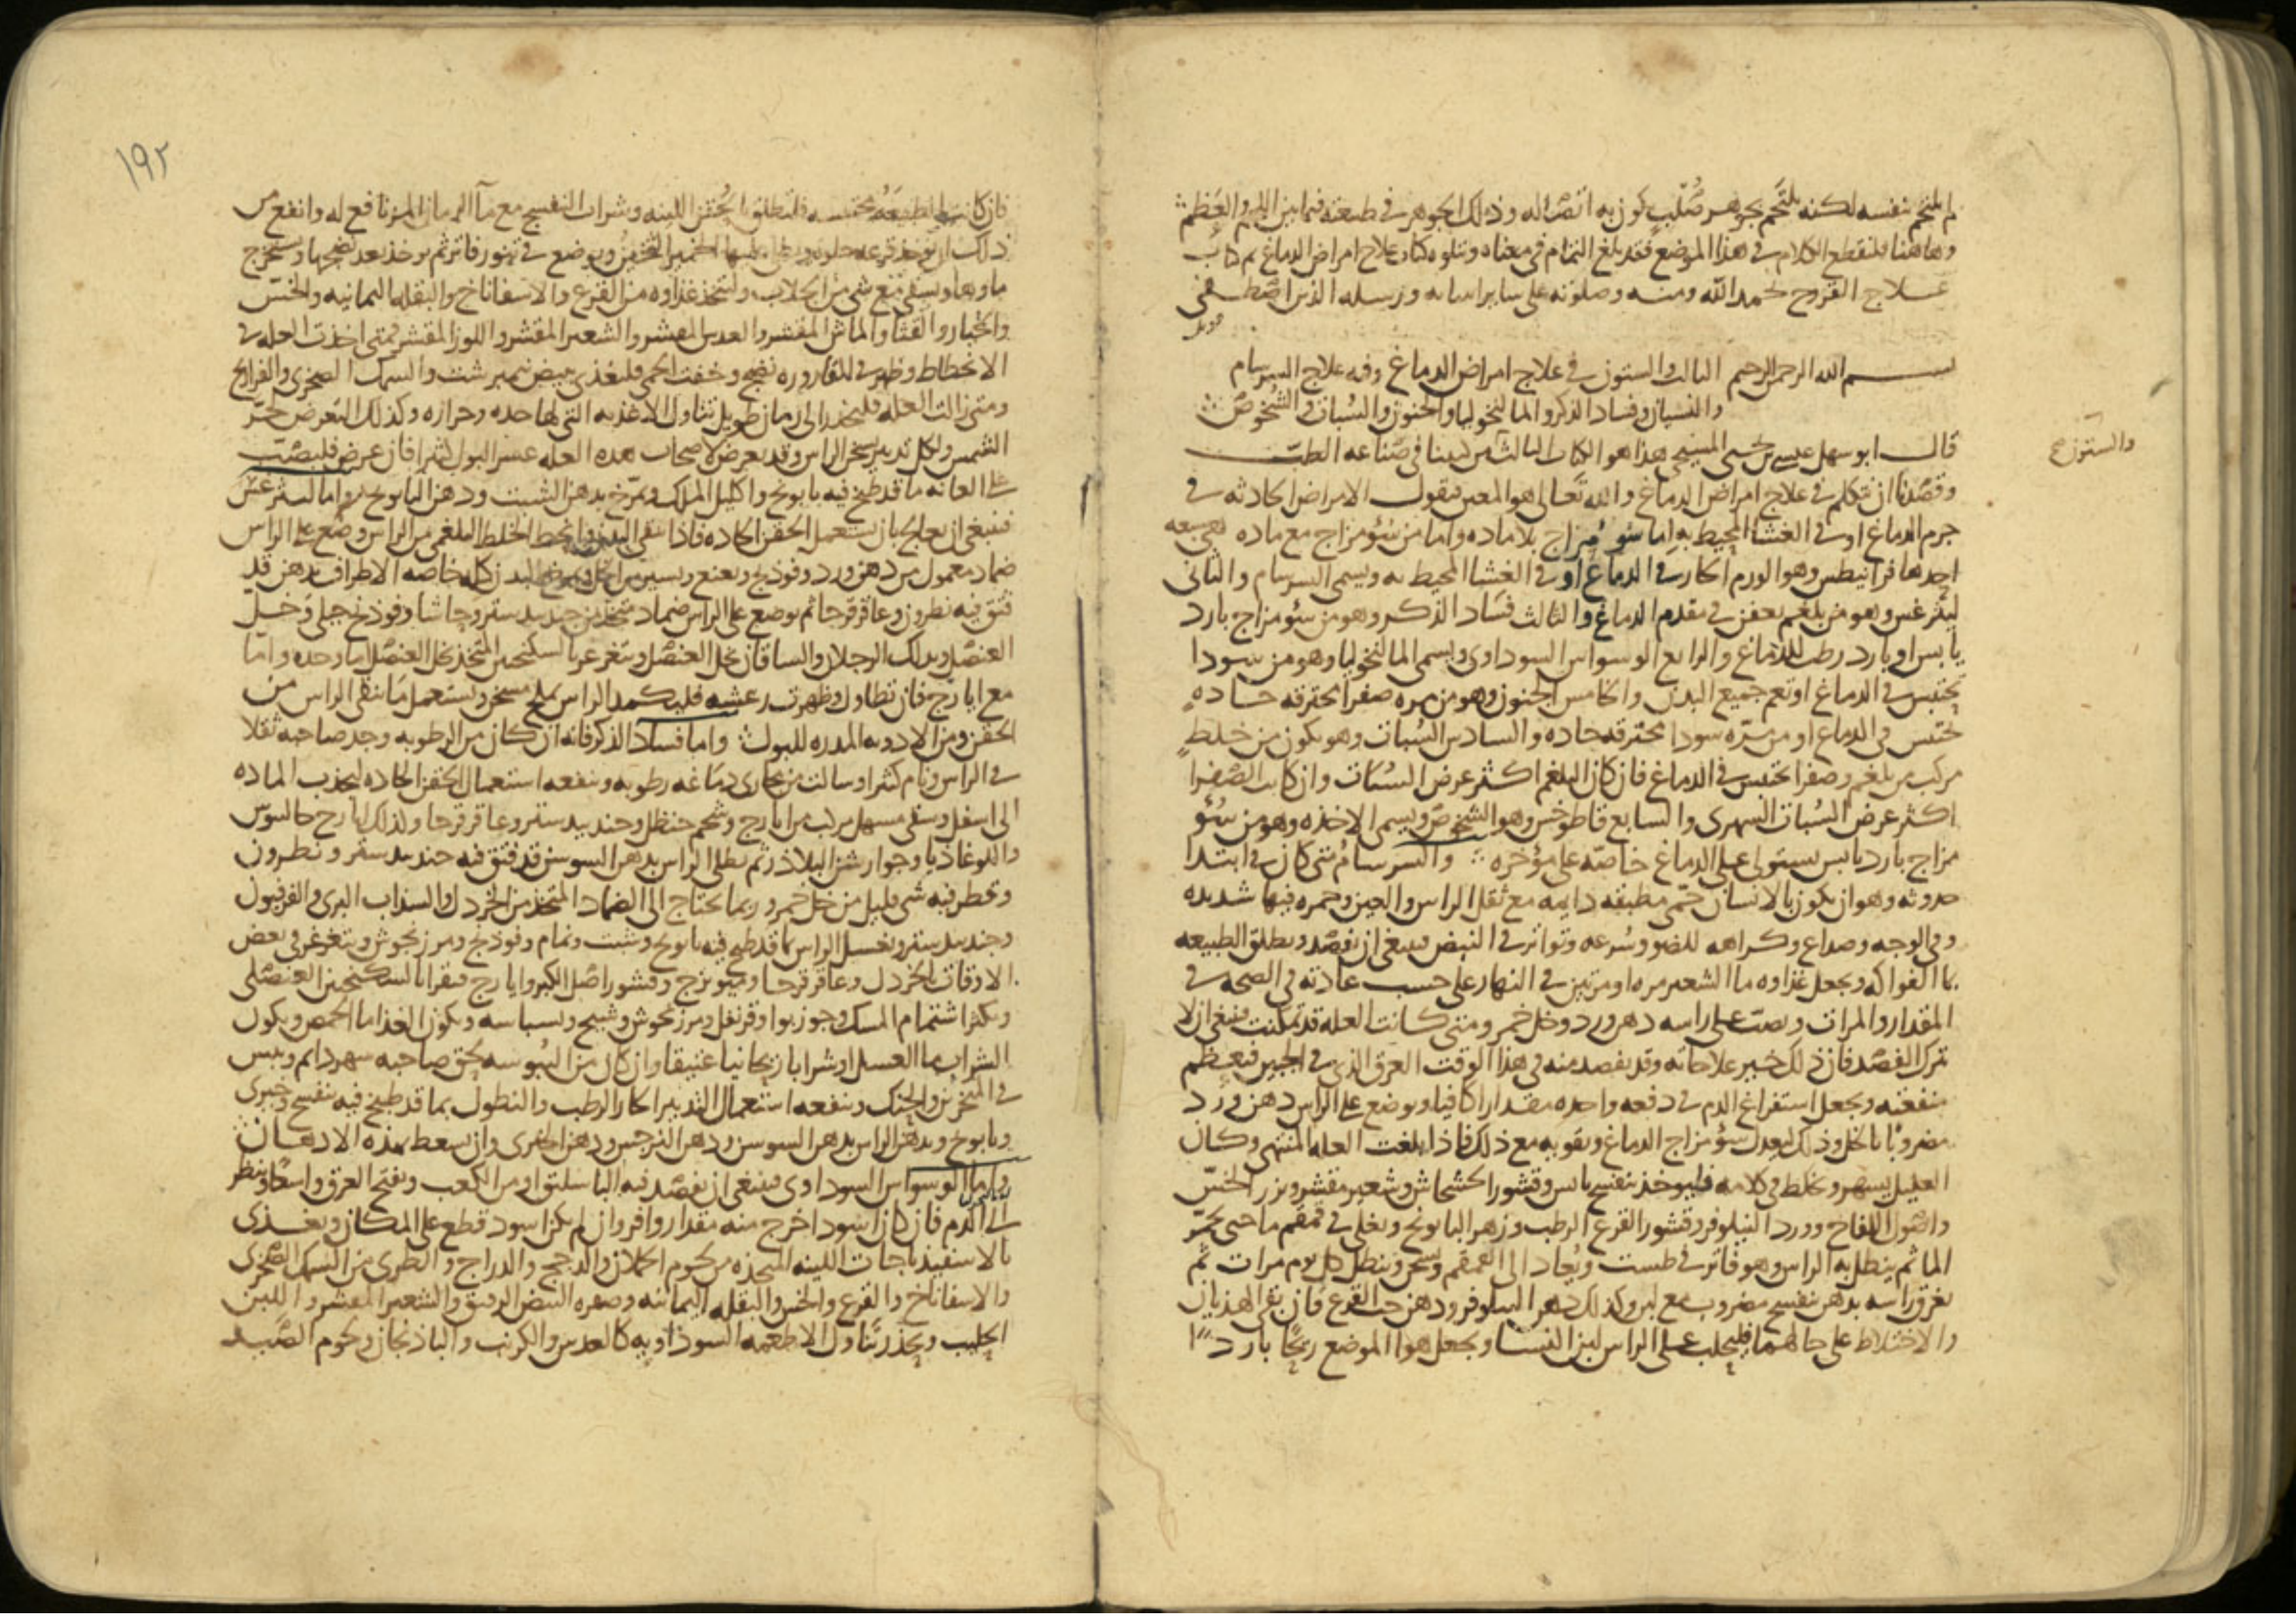 لم يلتحم بنفسه لكنه يلتحم بجوهر صُلب يكون به اتصاله وذلك الجوهر في طبعته فيما بين اللحم والعَظم
وهاهنا فلنقطع الكلام في هذا الموضع فقد بلغ التمام في معناه ويتلوه كتاب علاج امراض الدماغ تم كتاب
عـلاج القروح بحمد الله ومنه وصلوته على ساير انبيائه ورسله الذين اصطـفى
بسـم الله الرحمن الرحيم الثالث والستون في علاج امراض الدماغ وفيه علاج السرسام
والنسيان وفساد الذكر والمالنخوليا والجنون والسُبات والشُخوص
والستون
قال ابو سهل عيسى بن يحيى المسيحي هذا هو الكتاب الثالث من كتبنا في صناعه الطب
وقصدنا ان نتكلم في علاج امراض الدماغ والله تعالى هو المعين فنقول الامراض الحادثه في
جرم الدماغ او في الغشا المحيط به اما من سُوُ مزاج بلا ماده واما من سُوُ مزاج مع ماده هي سبعه
احدها فرانيطس وهو الورم الحار في الدماغ او في الغشا المحيط به ويسمى السرسام والثاني
ليثرغس وهو من بلغم يعفن في مقدم الدماغ والثالث فساد الذكر وهو من سؤ مزاج بارد
يابس او بارد رطب للدماغ والرابع الوسواس السوداوى ويسمى المالنخوليا وهو من سودا
تحتبس في الدماغ او تعم جميع البدن والخامس الجنون وهو من مره صفرا محترقه حاده
تحتبس في الدماغ او من مرّه سودا محترقه حاده والسادس السُبات وهو يكون من خلط
مركب من بلغم وصفرا تحتبس في الدماغ فان كان البلغم اكثر عرض السُبات وان كانت الصفرا
اكثر عرض السُبات السهرى والسابع قاطوخس وهو الشخوص ويسمى الاخذه وهو من سُؤ
مزاج بارد يابس يستولى على الدماغ خاصه على مؤخره والسرسام متى كان في ابتدا
حدوثه وهو ان يكون بالانسان حمّى مطبقه دايمه مع ثقل الراس والعين وحمره فيها شديده
وفي الوجه وصداع وكراهه للضو وسُرعه وتواتر في النبض فينبغي ان يفصد ويطلق الطبيعه
بما الفواكه ويجعل غذاوه ما الشعير مره او مرتين في النهار على حسب عادته في الصحه في
المقدار والمرات ويصب على راسه دهن ورد وخل خمر ومتى كانت العله قد تمكنت فينبغي ان لا
تترك الفصد فان ذلك خير علاجاته وقد يفصد منه في هذا الوقت العرق الذي في الجبين فتعظم
منفعته ويجعل استفراغ الدم في دفعه واحده مقدارا كافيا ويوضع على الراس دهن ورد
مضروبا بالخل وذلك ليعدل سؤ مزاج الدماغ ويقويه مع ذلك فاذا بلغت العله المنتهى وكان
العليل يسهر ويخلط في كلامه فليوخذ بنفسج يابس وقشور الخشخاش وشعير مقشر وبزر الخسّ
واصُول اللفاح وورد النيلوفر وقشور القرع الرطب وزهر البابونج ويغلى في قمقم ما حتى يحمّر
الما ثم ينطل به الراس وهو فاتر في طست ويُعاد الى القمقم ويسخن وينطل كل يوم مرات ثم
يغرق راسه بدهن بنفسج مضروب مع لبن وكذلك دهن النيلوفر ودهن حب القرع فان بقى الهذيان
والاختلاط على حالهما فليحلب على الراس لبن النسا ويجعل هوا الموضع ريحًا باردًا
١٩٢
فان كانت الطبيعَهُ محتبسه فلتطلق بالحُقن اللينه وشراب البنفسج مع ما الرمان المز نافع له وانفع من
ذلك ان يوخذ قرعه حلوه ويطلى عليها الخمير الثخين ويوضع في تنور فاتر ثم يوخذ بعد نضجها ويستخرج
ماوها ويسقى مع شي من الجلاب وليتخذ غذاوه من القرع والاسفاناخ والبقله اليمانيه والخسّ
والخيار والقثا والماش المقشر والعدس المقشر والشعير المقشر واللوز المقشر فمتى اخذت العله في
الانحطاط وظهر في القاروره نضج وخفت الحمى فليغذى ببيض نيمبرشت والسمك الصخرى والفراريج
ومتى زالت العله فليحذر الى زمان طويل تناول الاغذيه التي لها حده وحراره وكذلك التعرض لحرّ
الشمس ولكل تدبير يسخن الراس وقد يعرض لاصحاب هذه العله عسر البول كثيرا فان عرض فليصبّ
على العانه ما قد طبخ فيه بابونج واكليل الملك ويمرّخ بدهن الشبت ودهن البابونج واما ليثرغس
فينبغي ان يعالج بان يستعمل الحقن الحاده فاذا نقى البدن وانحط الخلط البلغمى من الراس وضُع على الراس
ضماد معمول من دهن ورد وفوذنج ونعنع ويسير من الخل ويمرخ البدن كله خاصه الاطراف بدهن قد
فتق فيه نطرون وعاقرقرحا ثم يوضع على الراس ضماد متخذ من جندبيدستر وحاشا وفوذنج جبلى وخلّ
العنصل ويدلك الرجلان والساقان بخل العنصل ويتغرغر بالسكنجبين المتخذ بخل العنصل اما وحده واما
مع ايارج فان تطاول وظهرت رعشه فليكمد الراس بملح مسخن ويستعمل ما ينقى الراس من
الحقن ومن الادويه المدره للبول واما فساد الذكر فانه ان كان من الرطوبه وجد صاحبه ثقلا
في الراس ونام كثيرا وسالت من مجارى دماغه رطوبه وينفعه استعمال الحقن الحاده ليجذب الماده
الى اسفل وسقى مسهل مركب من ايارج وشحم حنظل وجندبيدستر وعاقرقرحا وكذلك ايارج جالينوس
واللوغاذيا وجوارشن البلاذر ثم يطلى الراس بدهن السوسن قد فتق فيه جندبيدستر ونطرون
وتقطر فيه شي قليل من خل خمر وربما يحتاج الى الضماد المتخذ من الخردل والسذاب البرى والفربيون
وجندبيدستر ويغسل الراس بما قد طبخ فيه بابونج وشبت ونمام وفوذنج ومرزنجوش ويتغرغر في بعض
الاوقات بالخردل وعاقرقرحا وميويزج وقشور اصل الكبر وايارج فيقرا بالسكنجبين العنصلى
ويكثر اشتمام المسك وجوزبوا وقرنفل ومرزنجوش وشيح وبسباسه ويكون الغذا ما الحمص ويكون
الشراب ما العسل او شرابا ريحانيا عتيقا وان كان من اليبوسه لحق صاحبه سهر دايم ويبس
في المنخرين والحنك وينفعه استعمال التدبير الحار الرطب والنطول بما قد طبخ فيه بنفسج وخيرى
وبابونج ويدهن الراس بدهن السوسن ودهن النرجس ودهن الخيرى وان يسعط بهذه الادهان
واما الوسواس السوداوى فينبغي ان يفصد فيه الباسليق او من الكعب ويفتح العرق واسعًا وينظر
الى الدم فان كان اسود اخرج منه مقدار وافر وان لم يكن اسود قطع على المكان ويغذى
بالاسفيذباجات اللينه المتخذه من لحوم الحملان والدجج والدراج والطرى من السمك الصخرى
والاسفاناخ والقرع والخس والبقله اليمانيه وصفره البيض الرقيق والشعير المقشر واللبن
الحليب ويحذر تناول الاطعمه السوداويه كالعدس والكرنب والباذنجان ولحوم الصَيد